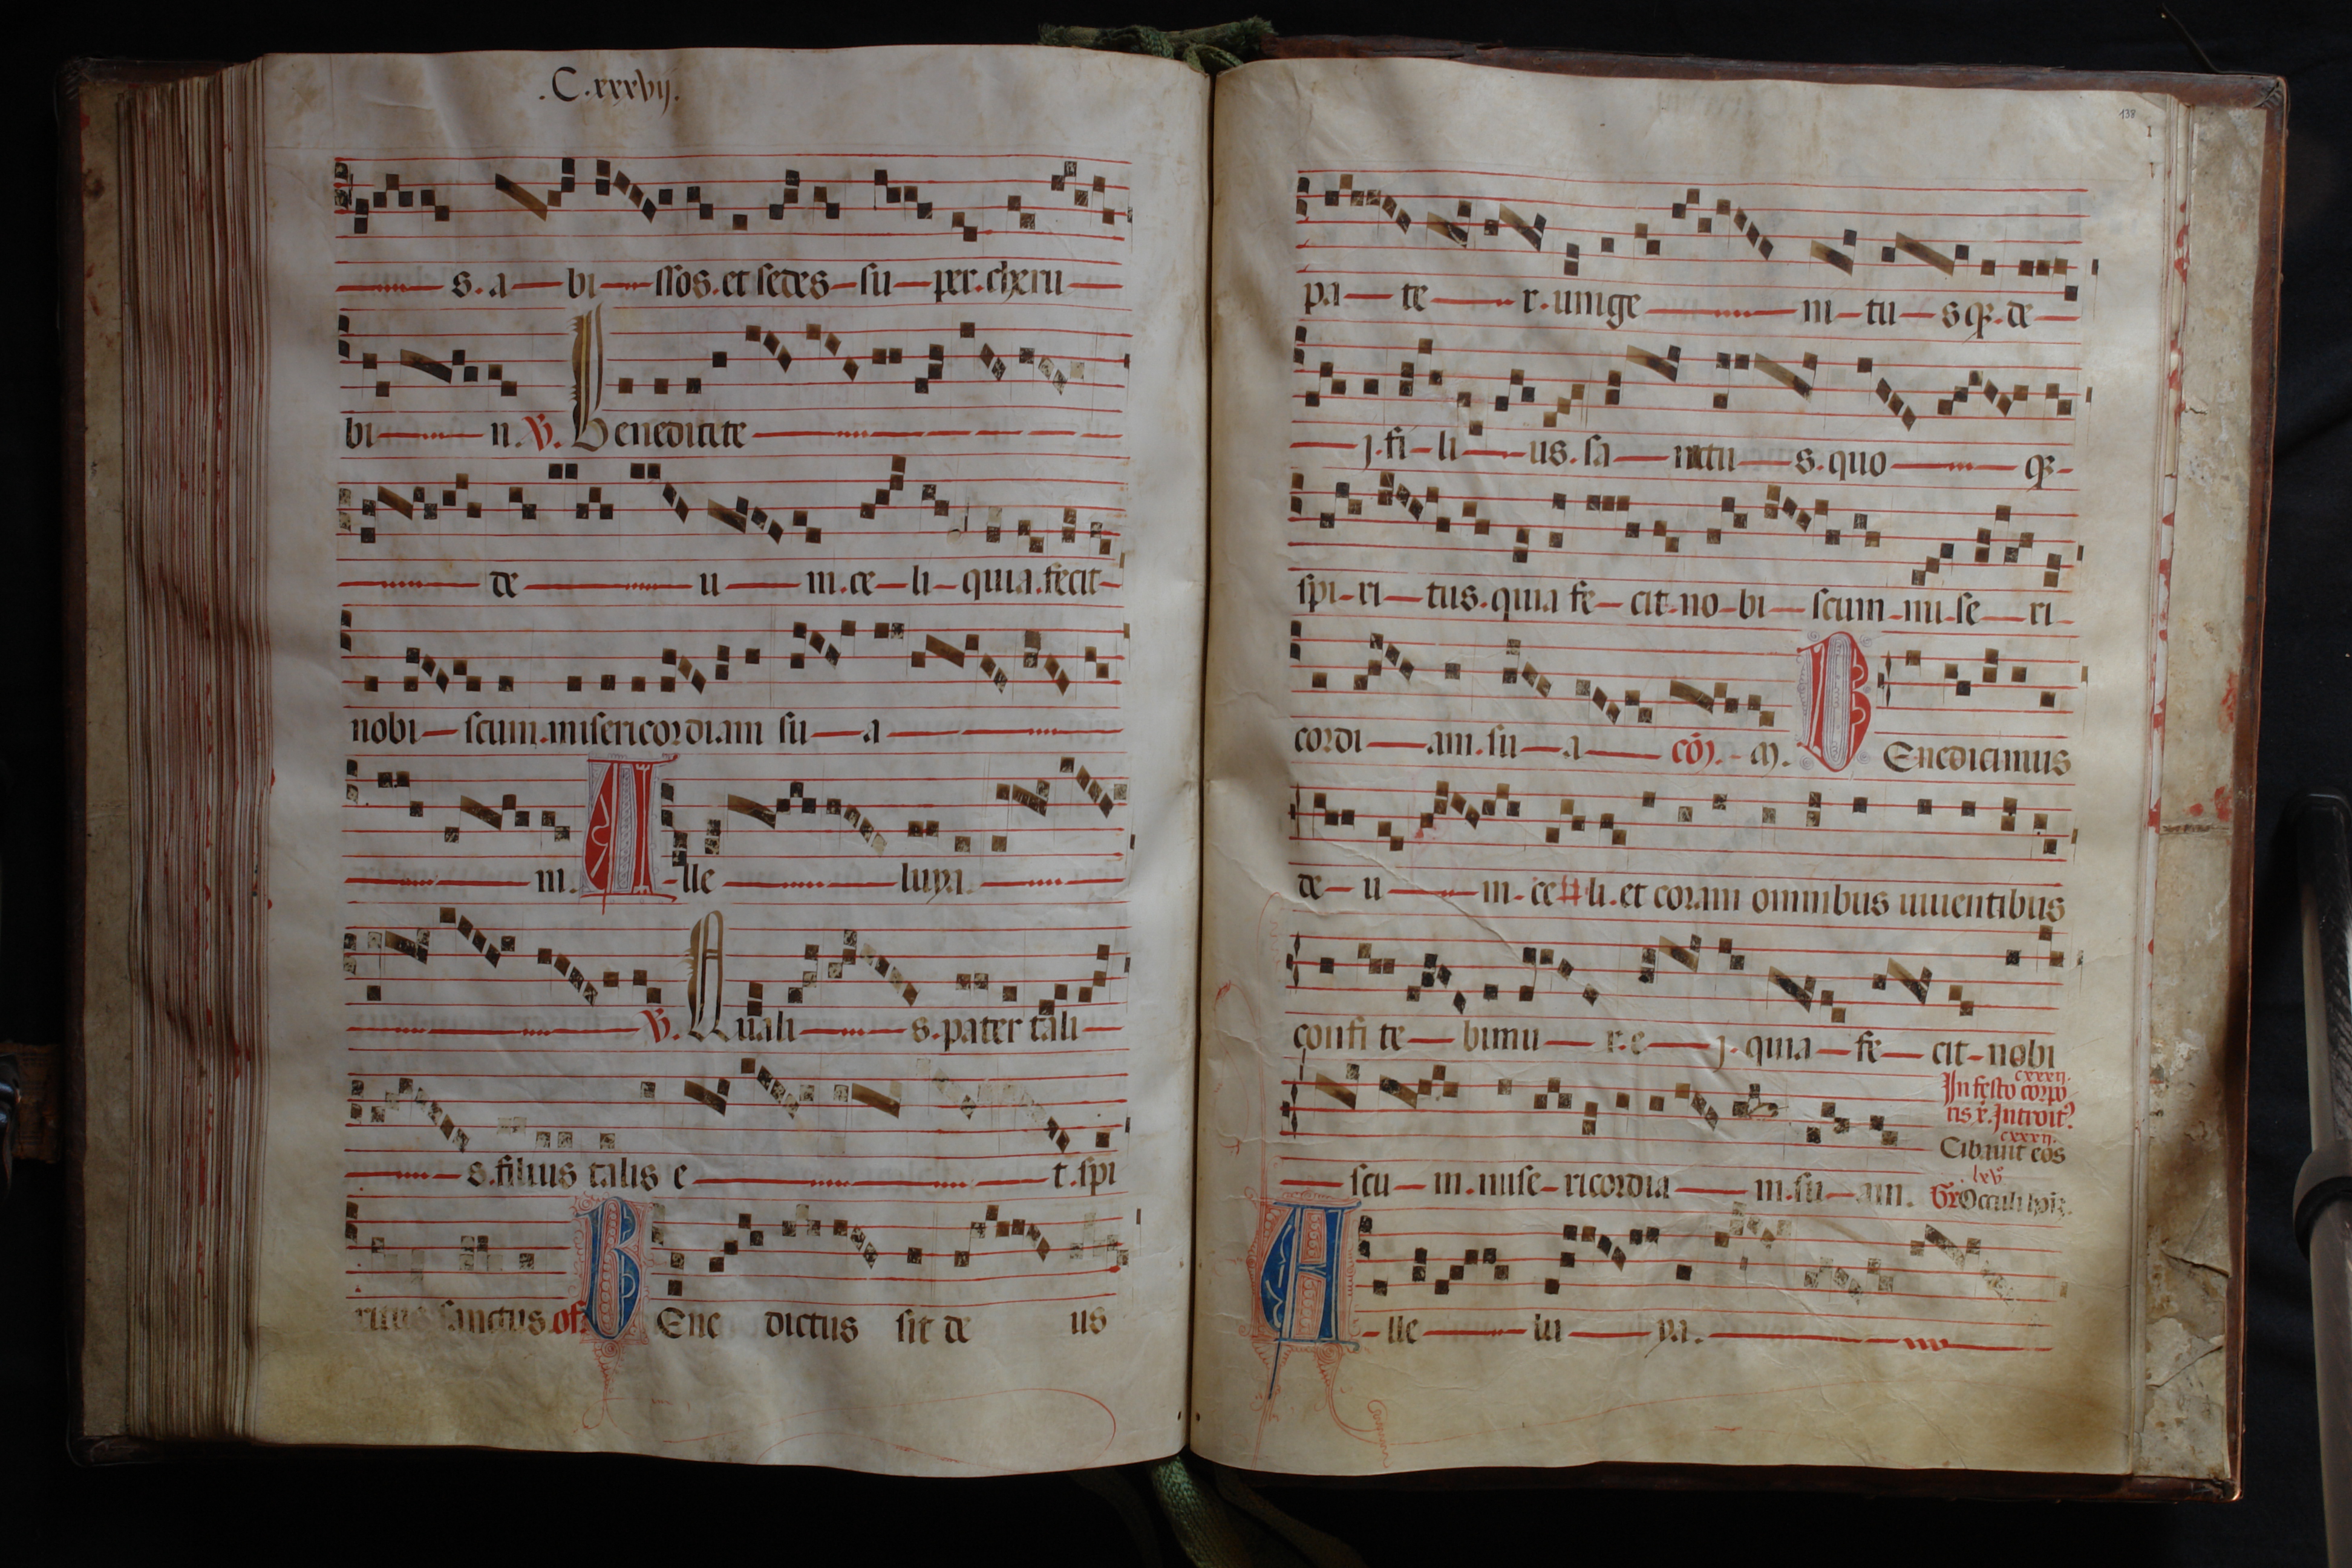 .C.xxxvij.
s. a bi ssos. et sedes su per. cheru
bi n. V. Benedicite
de u m. ce li quia. fecit
nobi scum. misericordiam su a
m. A lle luya.
V. Quali s. pater tali
s. filius talis e t. spi
ritus sanctus of. B Ene dictus sit de us
138
pa te r. unige ni tu sq3. de
j. fi li us. sa nctu s. quo q3
spi ri tus. quia fe cit no bi scum mi se ri
cordi am. su a co. B Enedicimus
de u m. ce li. et coram omnibus viventibus
confi te bimu r. e j. quia fe cit nobi
scu m. mise ricordia m. su am.
cxxxij.
In festo corpo
ris x. Introit9
cxxxij.
Cibavit eos
lxv
Gr Occuli
A lle lu ya.